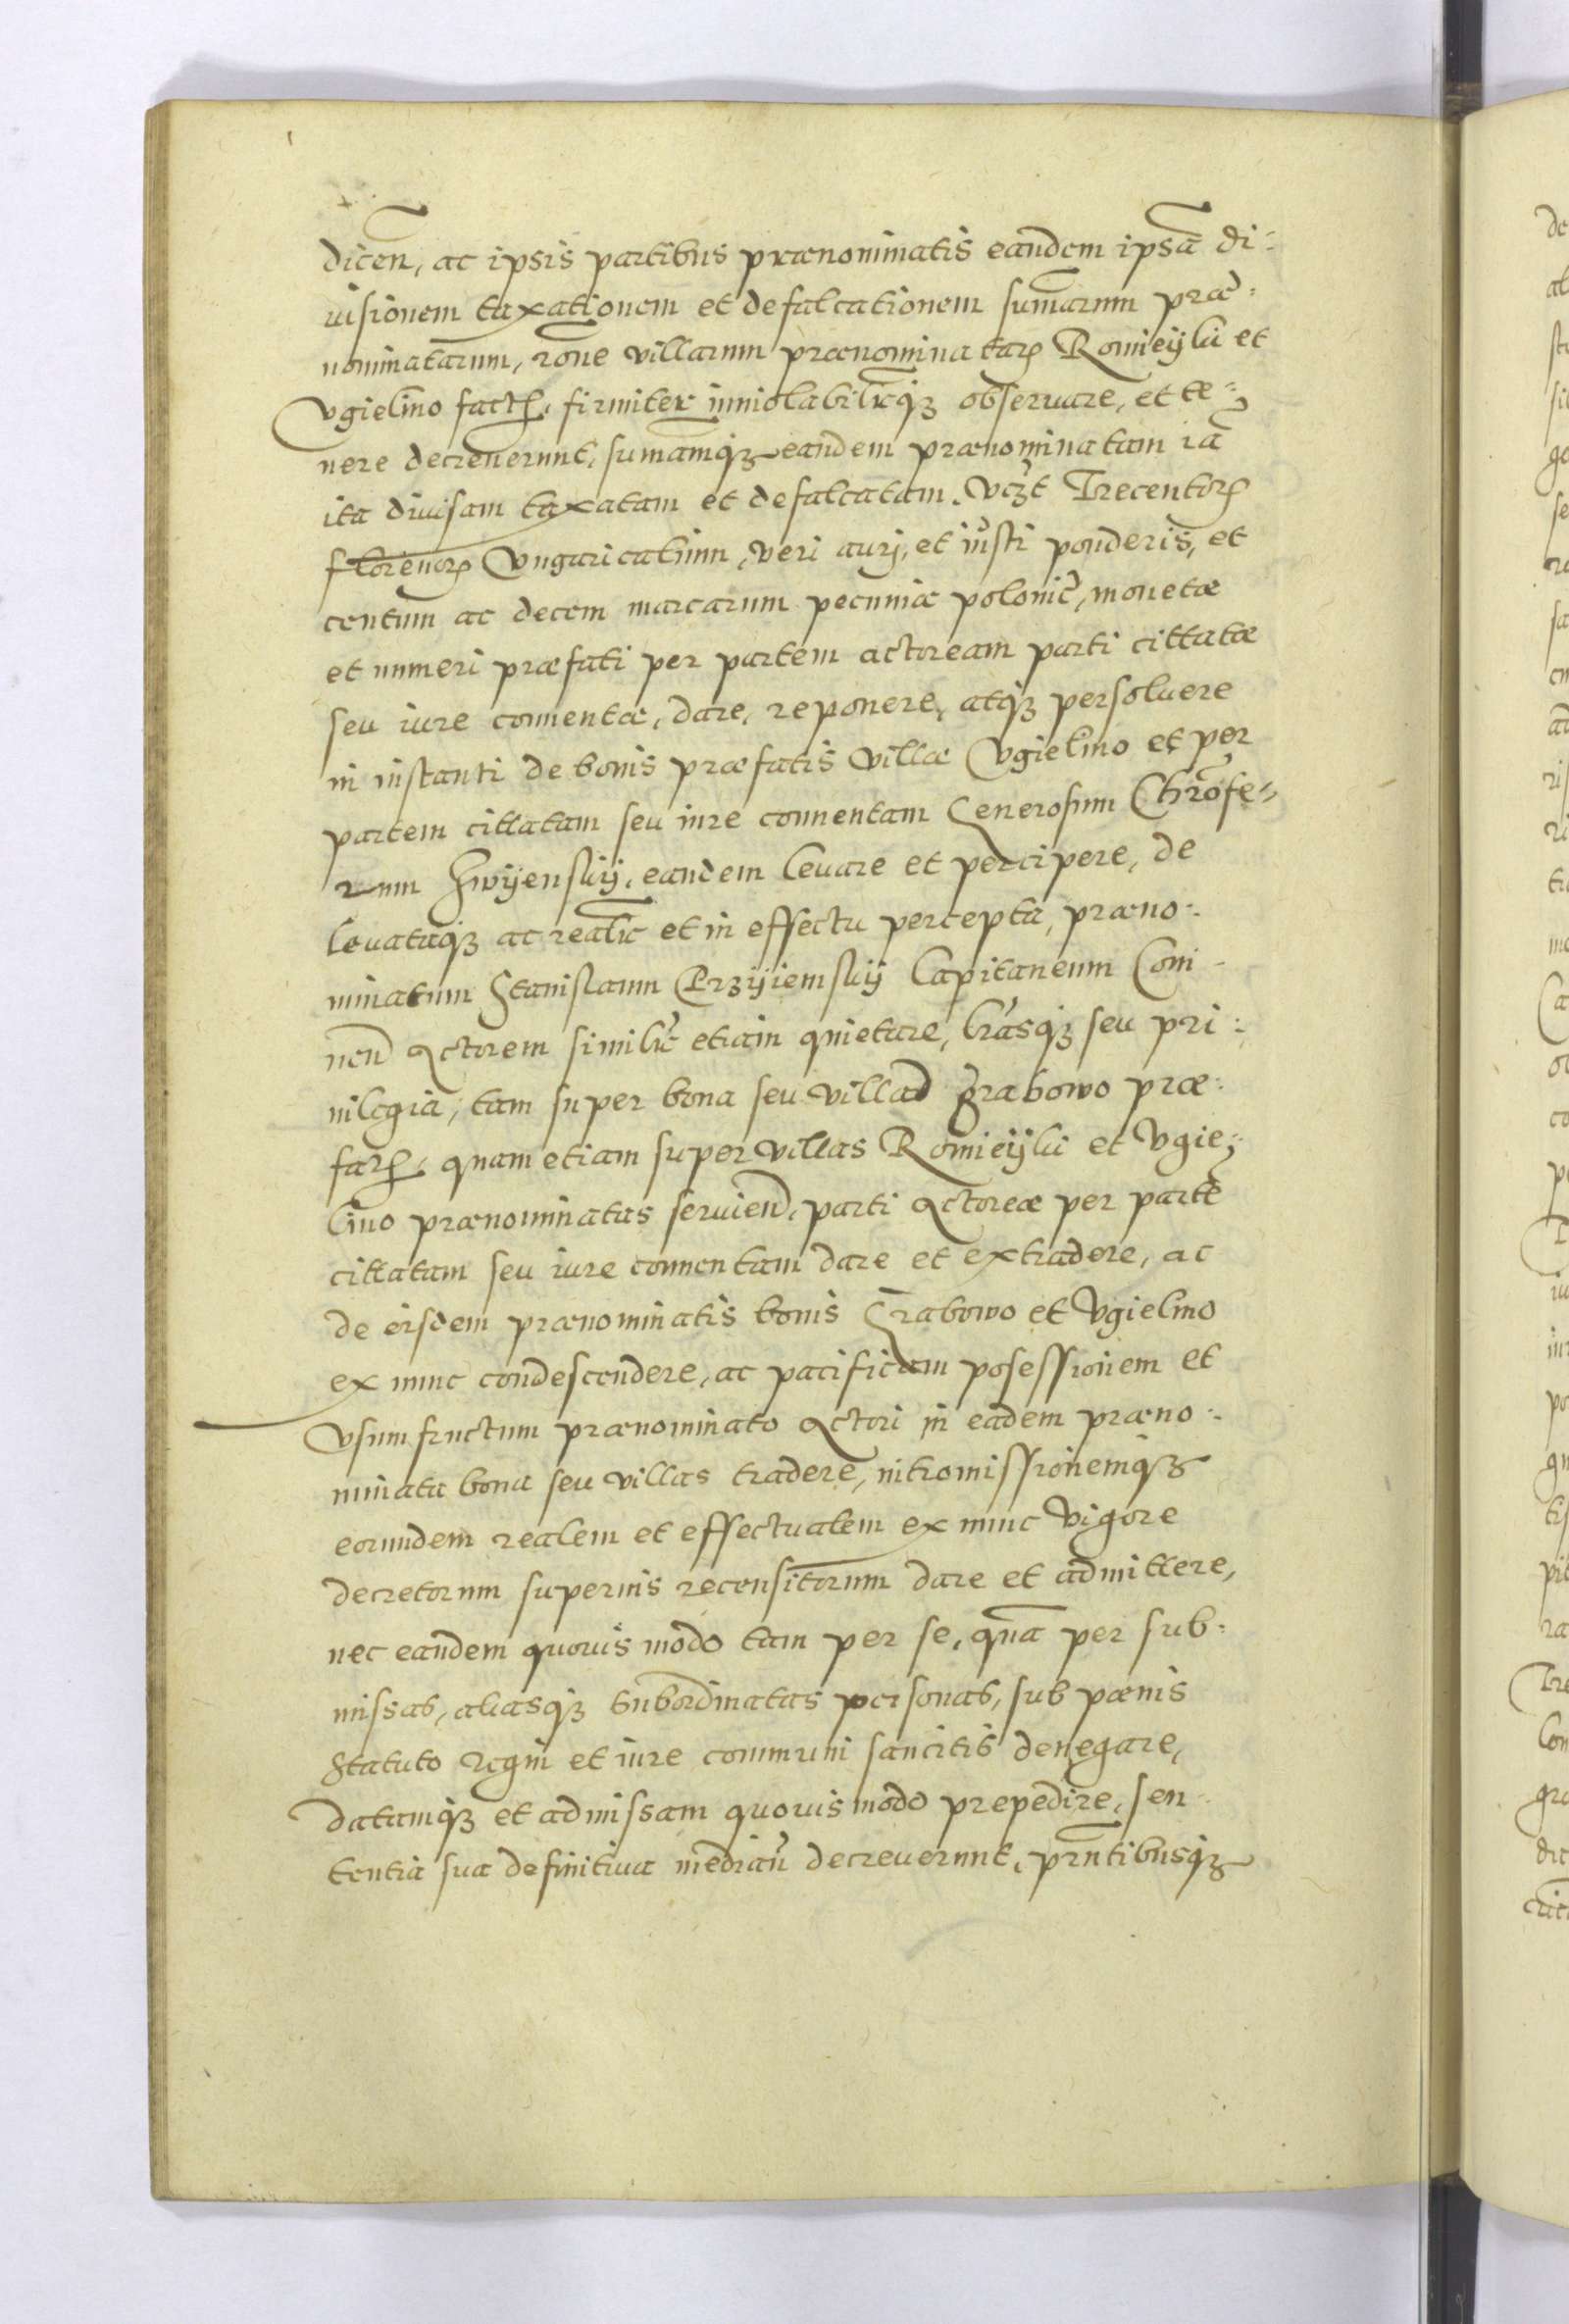 dicen̄, ac ipsis partibus prænominatis eandem ipsā di:
uisionem taxationem et defalcationem sum̄arum præ:
nominatarum, rōne villarum prænominatarꝫ Romieÿki et
Vgielmo factꝫ, firmiter inuiolabilr̄qꝫ obseruare, et te:
nere decreuerunt, sum̄amqꝫ eandem prænominatam iā
ita diuisam taxatam et defalcatam. Vczt Trecentorꝫ
florenorꝫ Vngaricalium, veri aurj, et iusti ponderis, et
centum ac decem marcarum pecuniæ polonic̄, monetæ
et numeri præfati per partem actoream parti cittatæ
seu iure conuentæ, dare, reponere, atqꝫ persoluere
in instanti de bonis præfatis villæ Vgielmo et per
partem cittatam seu iure conuentam Generosum Chr̄ofe:
rum Zwÿenskij, eandem leuare et percipere, de
leuataqꝫ ac realr̄ et in effectu percepta, præno:
minatum Stanislaum Przÿiemskij Capitaneum Coni-
nen̄ Actorem similr̄ etiam quietare, lr̄asqꝫ seu pri:
uilegia, tam super bona seu villā Grabowo præ:
fatꝫ, quam etiam super villas Romieÿki et Vgie:
lmo prænominatas seruien̄, parti Actoreæ per partē
cittatam seu iure conuentam dare et extradere, ac
de eisdem prænominatis bonis Grabowo et Vgielmo
ex nunc condescendere, ac pacificam posessionem et
vsumfructum prænominato Actori in eadem præno:
minata bona seu villas tradere, intromissionemqꝫ
eorundem realem et effectualem ex nunc vigore
decretorum superius recensitorum dare et admittere,
nec eandem quouis modo tam per se, quā per sub:
missas, aliasqꝫ subordinatas personas, sub pœnis
Statuto Regni et iure communi sancitis denegare,
datamqꝫ et admissam quouis modo prepedire, sen
tentia sua definitiua median̄ decreuerunt, pn̄tibusqꝫ